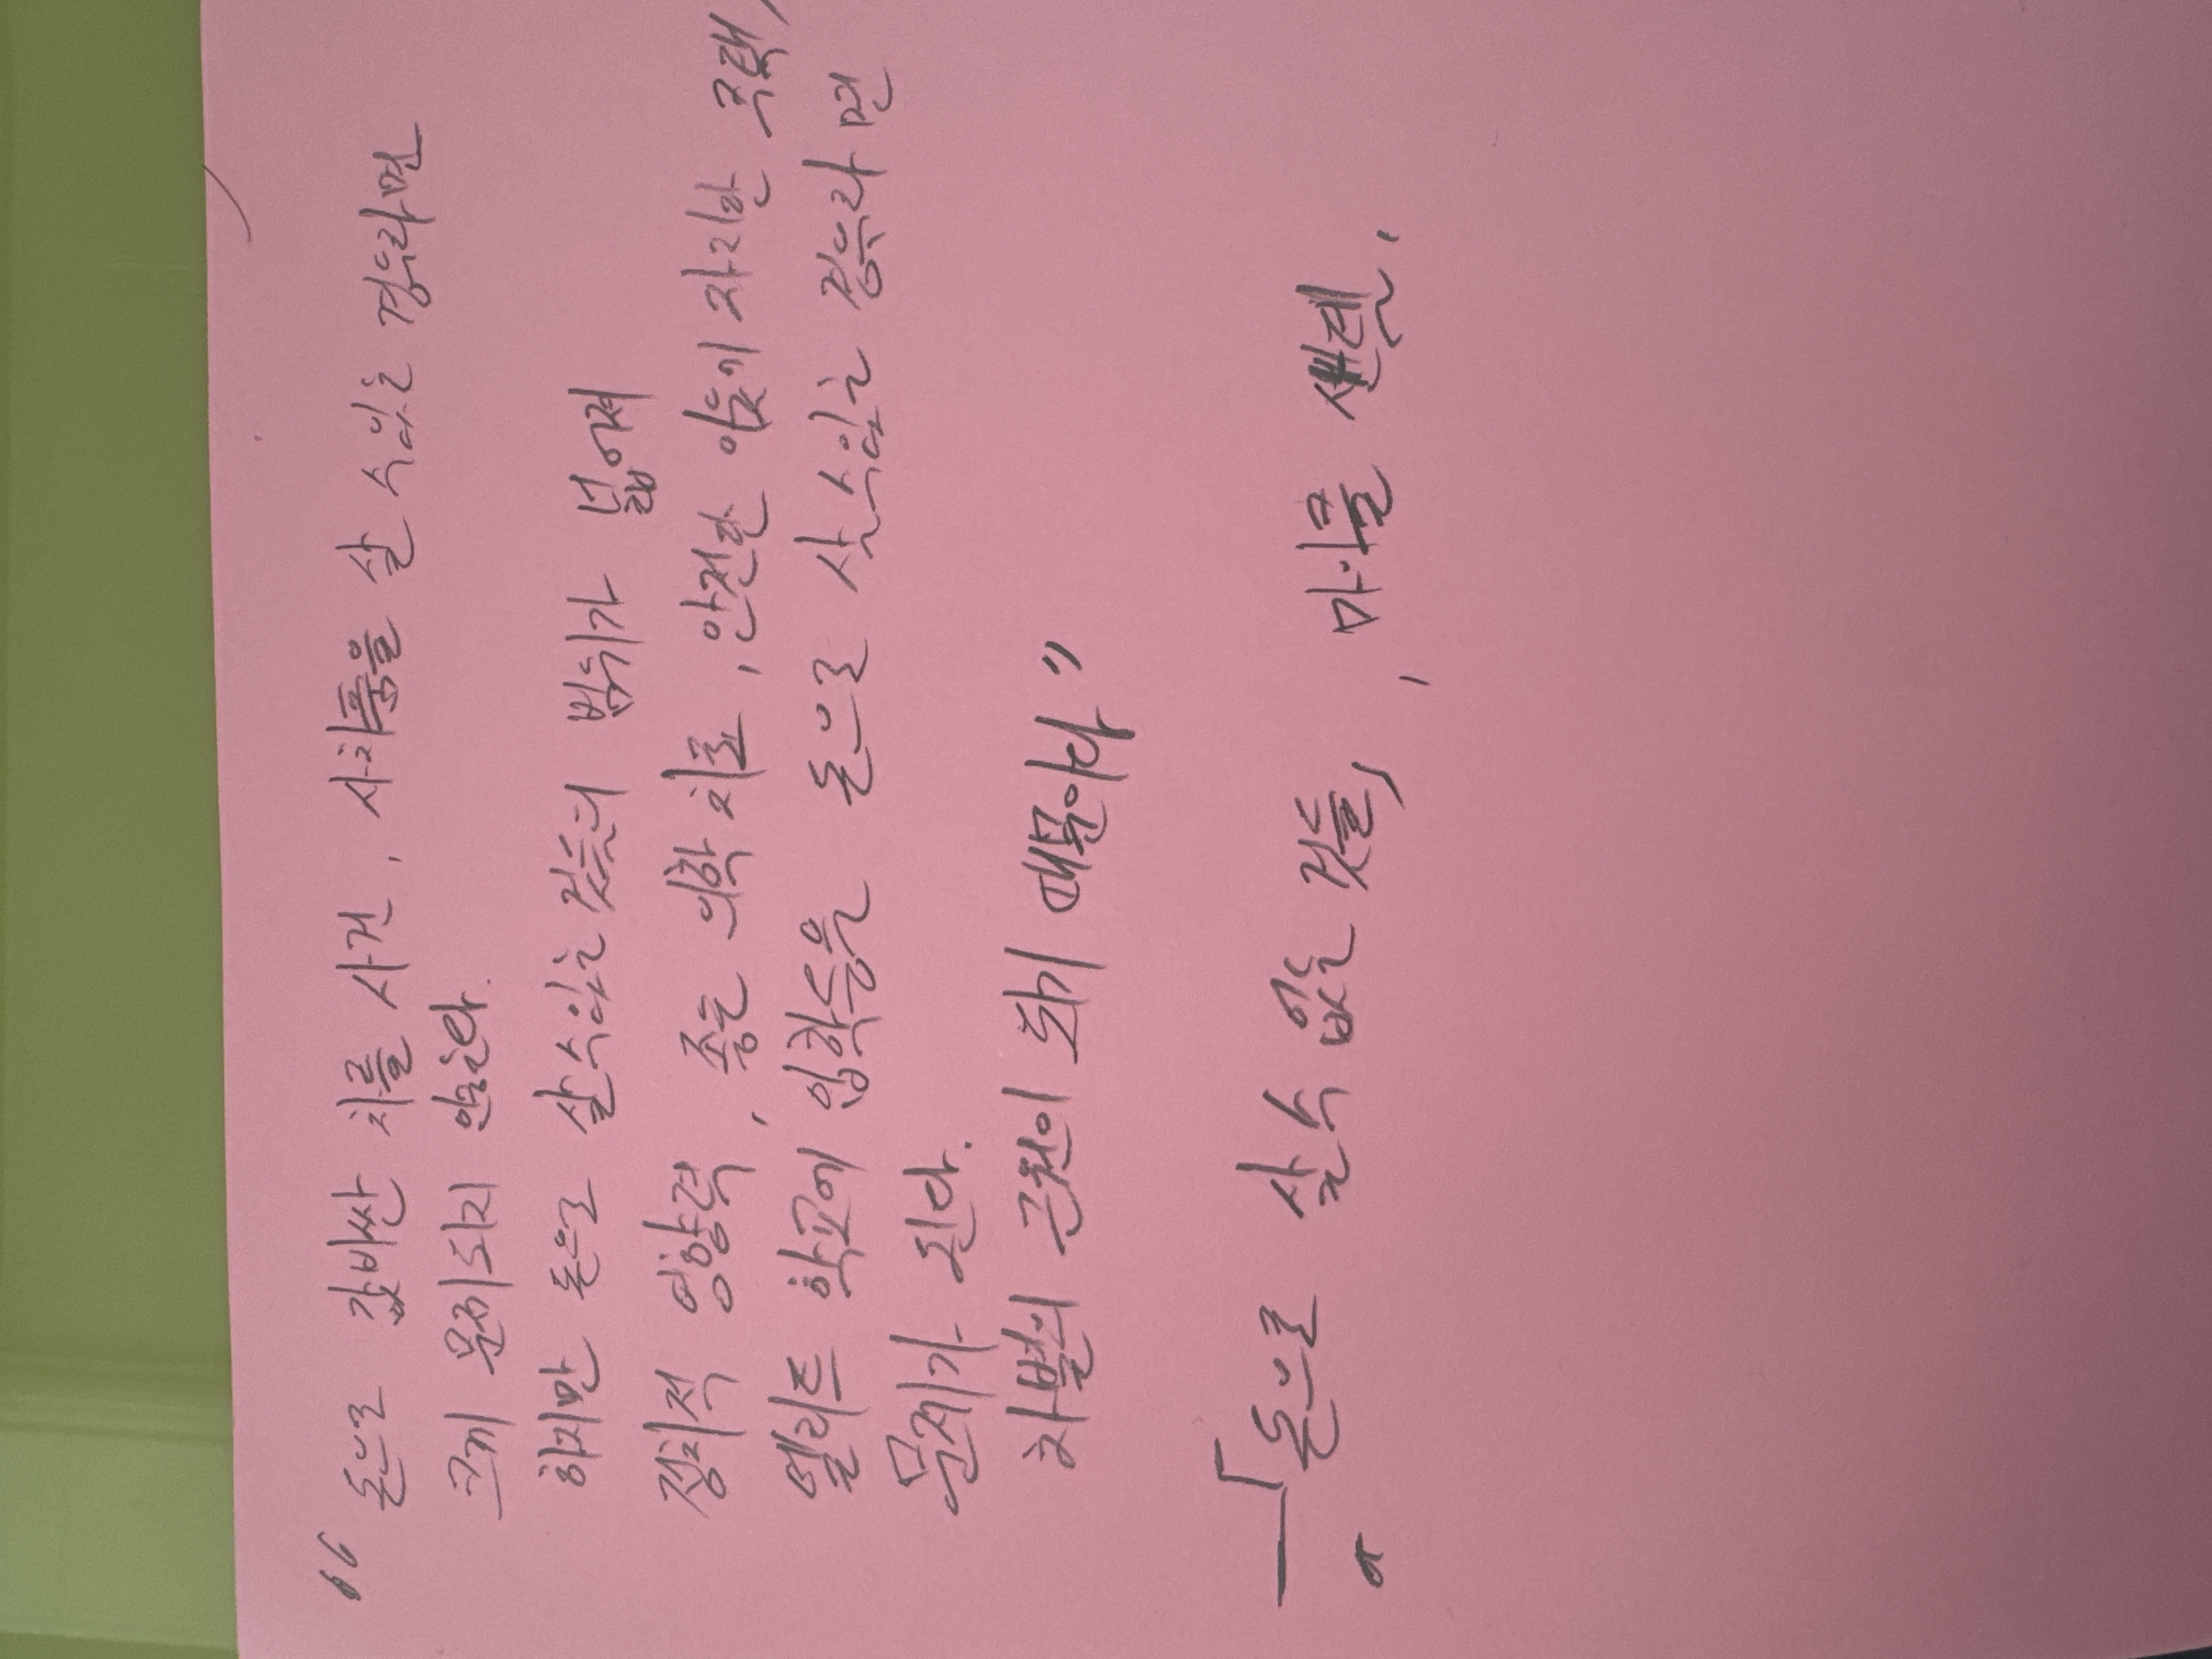 “ 돈으로 값비싼 차를 사건, 사치품을 살 수 있는 경우라면
크게 문제되지 않는다.
하지만 돈으로 살 수 있는 것들의 범위가 넓어져
정치적 영향력, 좋은 의학 치료, 안전한 이웃이 자리한 주택,
엘리트 학교에 입학등을 돈으로 살 수 있는 경우라면
문제가 된다.
차별의 근원이 되기 때문이다 ”
— 「돈으로 살 수 없는 것들」, 마이클 샌델.